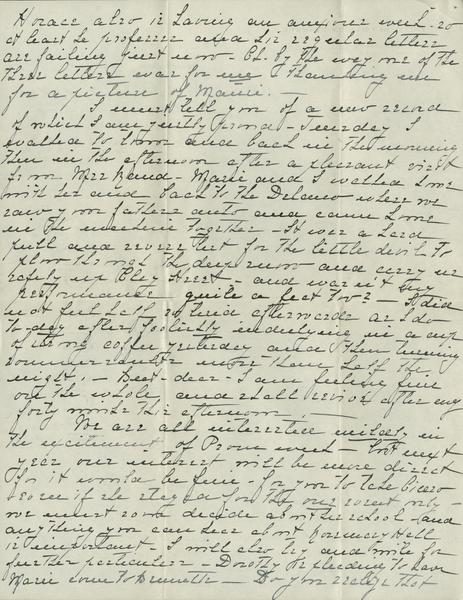 Horace also is having an anxious week - so
at least he professes and his regular letters
are failing just now - Oh. by the way, one of the
three letters was for me, thanking me
for a picture of Marie. -
I must tell you of a new record
of which I am justly proud - Tuesday I
walked to town and back in the morning
then in the afternoon after a pleasant visit
from Mrs. - Marie and I walked home
with her and back to the where we
saw your father's auto and came home
in the machine together - It was a hard
pull and severe test for the little devil to
plow through the deep snow and carry us
safely up Street - and wasn't my
performance quite a feat too? - I did
not feel half so tired afterwards as I do
to-day after foolishly indulging in a cup
of strong coffee yesterday and then having
more than half the
night. - But - dear - I am feeling fine
on the whole, and shall revive after my
forty winks this afternoon. -
We are all interested mildly in
the excitement of Prom week - but next
year our interest will be more direct
for it would be fun - for you to take
even if she stayed for the one event only -
we must soon decide about her school - and
anything you can hear about Rosemary Hall
is important - I will also try and write for
further particulars - Dorothy is pleading to have
Marie come to - Do you realize that